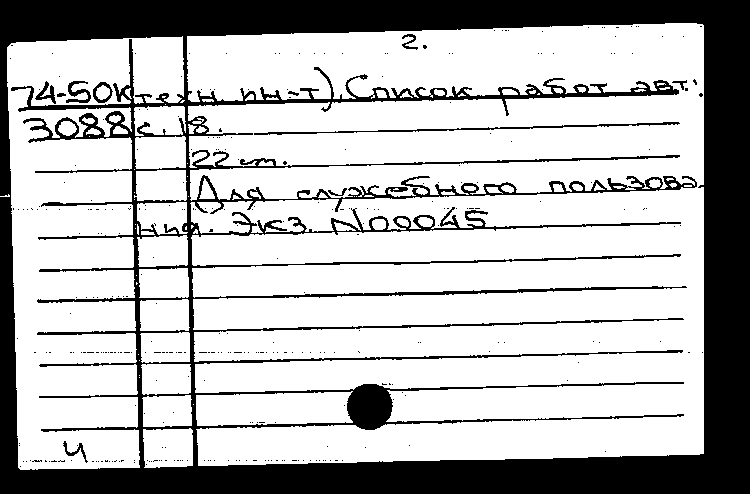 2.
74-50К техн. ин-т). Список работ авт.:
3088 с. 18.
22 см.
Для служебного пользова-
ния. Экз. N00045.
Ч